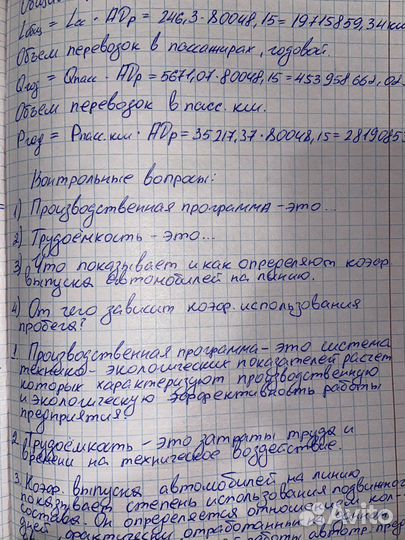 Lобщ = Lсс · АДр = 246,3 · 80048,15 = 19715859,34 км
Объем перевозок в пассажирах, годовой.
Qгод = Qпасс · АДр = 5671,07 · 80048,15 = 453958662,02
Объем перевозок в пасс. км.
Pгод = Pпасс.км · АДр = 35217,37 · 80048,15 = 2819085
Контрольные вопросы:
1) Производственная программа - это...
2) Трудоёмкость - это...
3) Что показывает и как определяют коэф.
выпуска автомобилей на линию.
4) От чего зависит коэф. использования
пробега?
1. Производственная программа - это система
технико - экологических показателей расчет
которых характеризуют производственную
и экологическую эффективность работы
предприятия
2. Трудоёмкость - это затраты труда и
времени на техническое воздействие.
3. Коэф. выпуска автомобилей на линию
показывает степень использования подвижного
состава. Он определяется отношением кол-
дней, фактически отработанных
работы автотр. пред
Avito